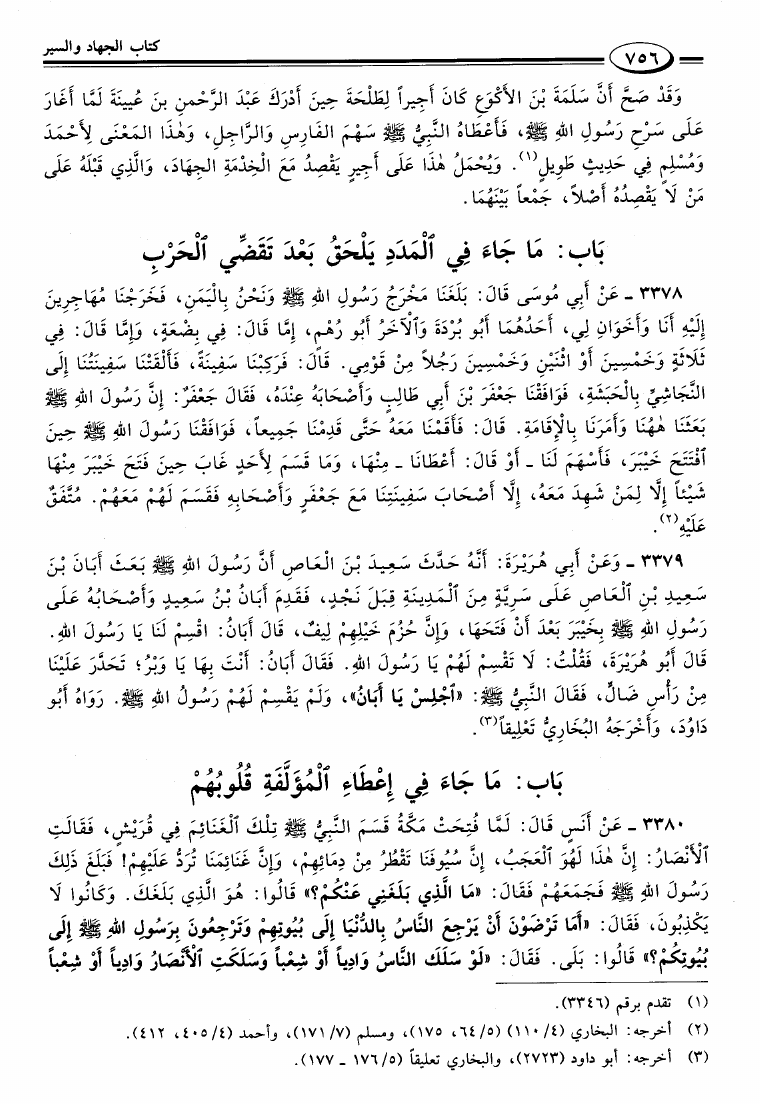 كتاب الجهاد والسير
٧٥٦
وَقَدْ صَحَّ أَنَّ سَلَمَةَ بْنَ الأَكْوَعِ كَانَ أَجِيراً لِطَلْحَةَ حِينَ أَدْرَكَ عَبْدَ الرَّحْمنِ بنَ عُيينَةَ لَمَّا أَغَارَ
عَلَى سَرْحِ رَسُولِ اللهِ ﷺ، فَأَعْطَاهُ النَّبِيُّ ﷺ سَهْمَ الفَارِسِ وَالرَّاجِلِ، وَهٰذَا المَعْنَى لِأَحْمَدَ
وَمُسْلِمٍ فِي حَدِيثٍ طَوِيلٍ(١). وَيُحْمَلُ هٰذَا عَلَى أَجِيرٍ يَقْصِدُ مَعَ الْخِدْمَةِ الجِهَادَ، وَالَّذِي قَبْلَهُ عَلَى
مَنْ لَا يَقْصِدُهُ أَصْلاً، جَمْعاً بَيْنَهُمَا.
بَاب: مَا جَاءَ فِي ٱلْمَدَدِ يَلْحَقُ بَعْدَ تَقَضِّي ٱلْحَرْبِ
٣٣٧٨ ـ عَنْ أَبِي مُوسَى قَالَ: بَلَغَنَا مَخْرَجُ رَسُولِ اللهِ ﷺ وَنَحْنُ بِالْيَمَنِ، فَخَرَجْنَا مُهَاجِرِينَ
إِلَيْهِ أَنَا وَأَخَوَانِ لِي، أَحَدُهُمَا أَبُو بُرْدَةَ وَٱلْآخَرُ أَبُو رُهْمٍ، إِمَّا قَالَ: فِي بِضْعَةٍ، وَإِمَّا قَالَ: فِي
ثَلَاثَةٍ وَخَمْسِينَ أَوْ اثْنَيْنِ وَخَمْسِينَ رَجُلاً مِنْ قَوْمِي. قَالَ: فَرَكِبْنَا سَفِينَةً، فَأَلْقَتْنَا سَفِينَتُنَا إِلَى
النَّجَاشِيِّ بِالْحَبَشَةِ، فَوَافَقْنَا جَعْفَرَ بْنَ أَبِي طَالِبٍ وَأَصْحَابَهُ عِنْدَهُ، فَقَالَ جَعْفَرٌ: إِنَّ رَسُولَ اللهِ ﷺ
بَعَثَنَا هٰهُنَا وَأَمَرَنَا بِالْإِقَامَةِ. قَالَ: فَأَقَمْنَا مَعَهُ حَتَّى قَدِمْنَا جَمِيعاً، فَوَافَقْنَا رَسُولَ اللهِ ﷺ حِينَ
ٱفْتَتَحَ خَيْبَرَ، فَأَسْهَمَ لَنَا ـ أَوْ قَالَ: أَعْطَانَا ـ مِنْهَا، وَمَا قَسَمَ لِأَحَدٍ غَابَ حِينَ فَتَحَ خَيْبَرَ مِنْهَا
شَيْئاً إِلَّا لِمَنْ شَهِدَ مَعَهُ، إِلَّا أَصْحَابَ سَفِينَتِنَا مَعَ جَعْفَرٍ وَأَصْحَابِهِ فَقَسَمَ لَهُمْ مَعَهُمْ. مُتَّفَقٌ
عَلَيْهِ(٢).
٣٣٧٩ ـ وَعَنْ أَبِي هُرَيْرَةَ: أَنَّهُ حَدَّثَ سَعِيدَ بْنَ الْعَاصِ أَنَّ رَسُولَ اللهِ ﷺ بَعَثَ أَبَانَ بْنَ
سَعِيدِ بْنِ ٱلْعَاصِ عَلَى سَرِيَّةٍ مِنَ ٱلْمَدِينَةِ قِبَلَ نَجْدٍ، فَقَدِمَ أَبَانُ بْنُ سَعِيدٍ وَأَصْحَابُهُ عَلَى
رَسُولِ اللهِ ﷺ بِخَيْبَرَ بَعْدَ أَنْ فَتَحَهَا، وَإِنَّ حُزُمَ خَيْلِهِمْ لِيفٌ، قَالَ أَبَانُ: اقْسِمْ لَنَا يَا رَسُولَ اللهِ.
قَالَ أَبُو هُرَيْرَةَ، فَقُلْتُ: لَا تَقْسِمْ لَهُمْ يَا رَسُولَ اللهِ. فَقَالَ أَبَانُ: أَنْتَ بِهَا يَا وَبْرُ؛ تَحَدَّرَ عَلَيْنَا
مِنْ رَأْسِ ضَالٍّ، فَقَالَ النَّبِيُّ ﷺ: «ٱجْلِسْ يَا أَبَانُ»، وَلَمْ يَقْسِمْ لَهُمْ رَسُولُ اللهِ ﷺ. رَوَاهُ أَبُو
دَاوُدَ، وَأَخْرَجَهُ البُخَارِيُّ تَعْلِيقاً(٣).
بَاب: مَا جَاءَ فِي إِعْطَاءِ ٱلْمُؤَلَّفَةِ قُلُوبُهُمْ
٣٣٨٠ ـ عَنْ أَنَسٍ قَالَ: لَمَّا فُتِحَتْ مَكَّةُ قَسَمَ النَّبِيُّ ﷺ تِلْكَ ٱلْغَنَائِمَ فِي قُرَيْشٍ، فَقَالَتِ
ٱلْأَنْصَارُ: إِنَّ هٰذَا لَهُوَ ٱلْعَجَبُ، إِنَّ سُيُوفَنَا تَقْطُرُ مِنْ دِمَائِهِمْ، وَإِنَّ غَنَائِمَنَا تُرَدُّ عَلَيْهِمْ! فَبَلَغَ ذٰلِكَ
رَسُولَ اللهِ ﷺ فَجَمَعَهُمْ فَقَالَ: «مَا الَّذِي بَلَغَنِي عَنْكُمْ؟» قَالُوا: هُوَ الَّذِي بَلَغَكَ. وَكَانُوا لَا
يَكْذِبُونَ، فَقَالَ: «أَمَا تَرْضَوْنَ أَنْ يَرْجِعَ النَّاسُ بِالدُّنْيَا إِلَى بُيُوتِهِمْ وَتَرْجِعُونَ بِرَسُولِ اللهِ ﷺ إِلَى
بُيُوتِكُمْ؟» قَالُوا: بَلَى. فَقَالَ: «لَوْ سَلَكَ النَّاسُ وَادِياً أَوْ شِعْباً وَسَلَكَتِ ٱلْأَنْصَارُ وَادِياً أَوْ شِعْباً
(١) تقدم برقم (٣٣٤٦).
(٢) أخرجه: البخاري (٤/ ١١٠) (٥/ ٦٤، ١٧٥)، ومسلم (٧/ ١٧١)، وأحمد (٤/ ٤٠٥، ٤١٢).
(٣) أخرجه: أبو داود (٢٧٢٣)، والبخاري تعليقاً (٥/ ١٧٦ ـ ١٧٧).